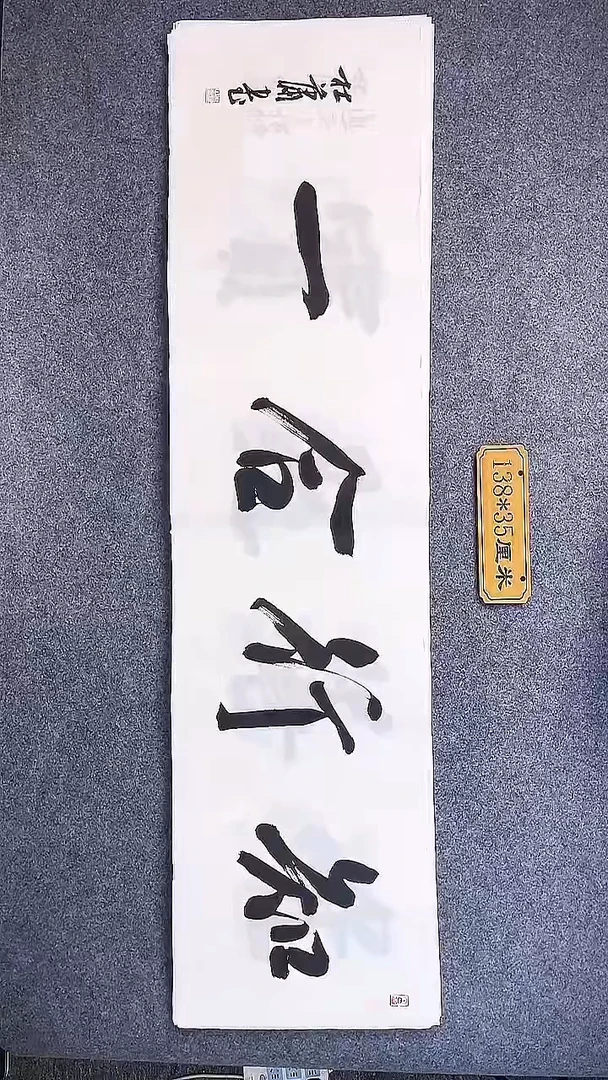 知行合一
138*35厘米